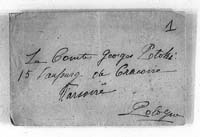 1
Le Comte Georges Potocki
15 Faubourg de Cracovie
Varsovie
Pologne